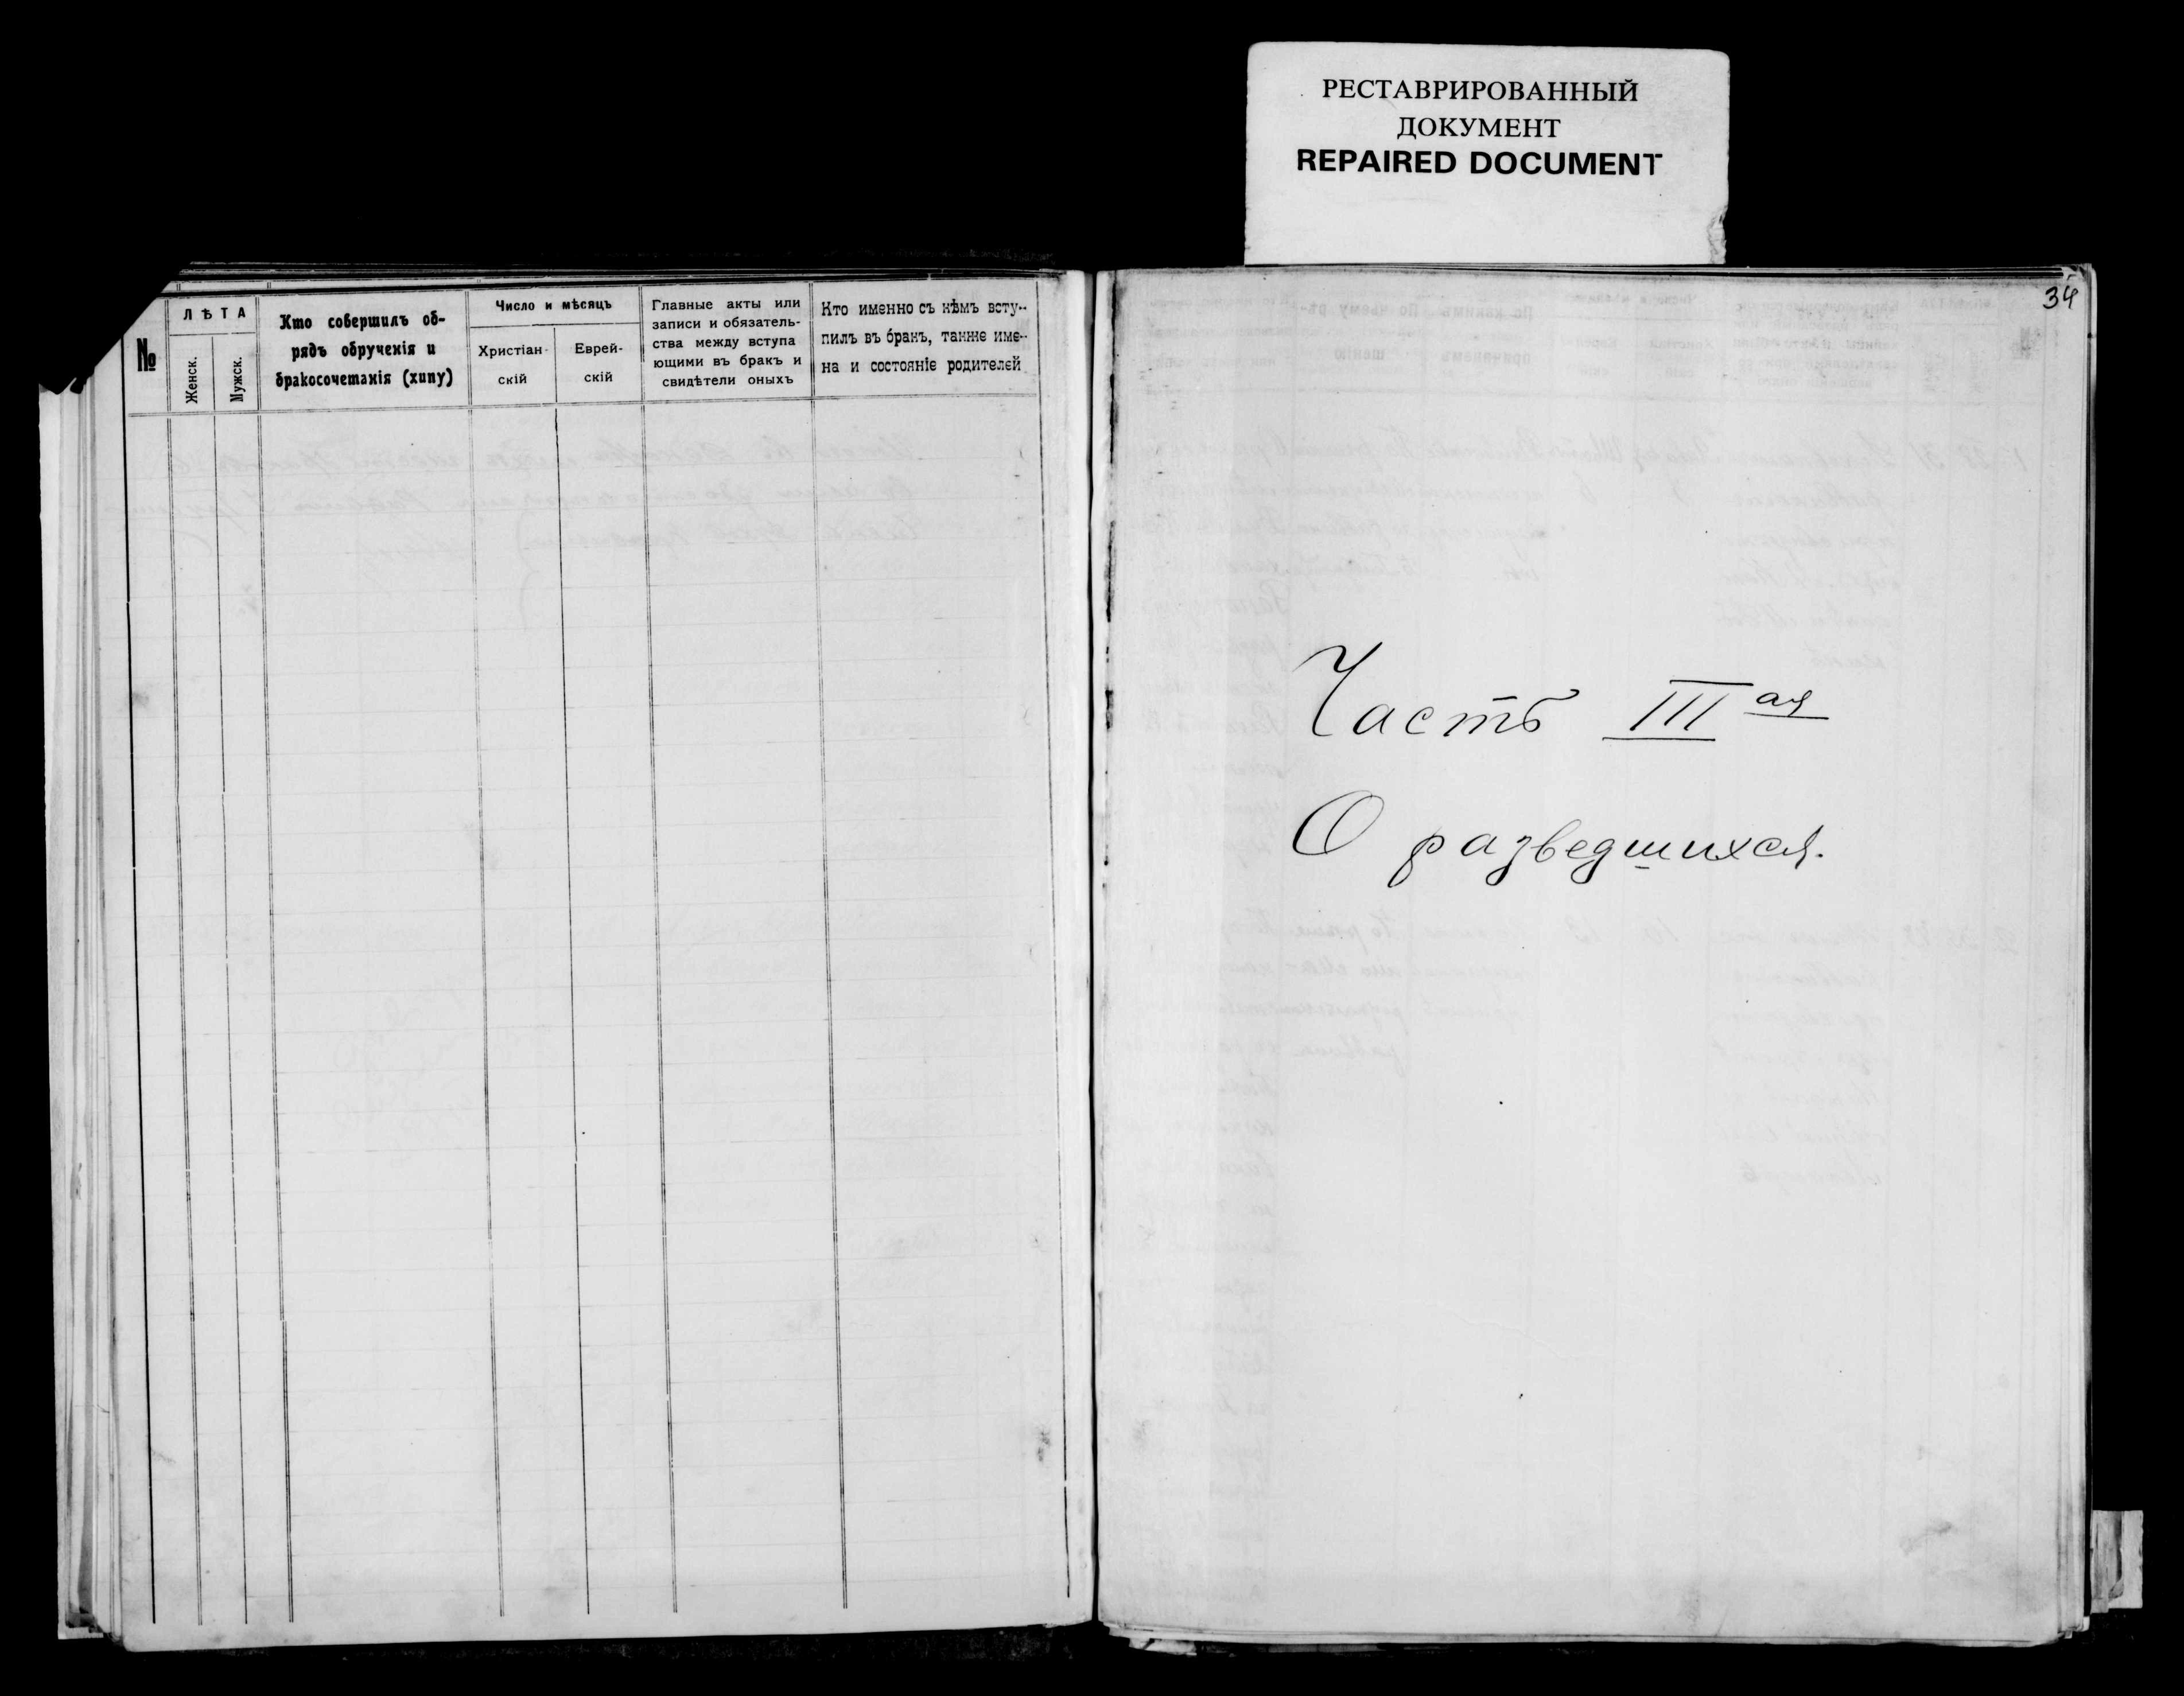 РЕСТАВРИРОВАННЫЙ
ДОКУМЕНТ
REPAIRED DOCUMENT
№
ЛѢТА
Женск.
Мужск.
Кто совершилъ об-
рядъ обрученія и
бракосочетанія (хипу)
Число и мѣсяцъ
Христіан-
скій
Еврей-
скій
Главные акты или
записи и обязатель-
ства между вступа
ющими въ бракъ и
свидѣтели оныхъ
Кто именно съ кѣмъ всту-
пилъ въ бракъ, также име-
на и состояніе родителей
34
Часть III ая
О разведшихся.